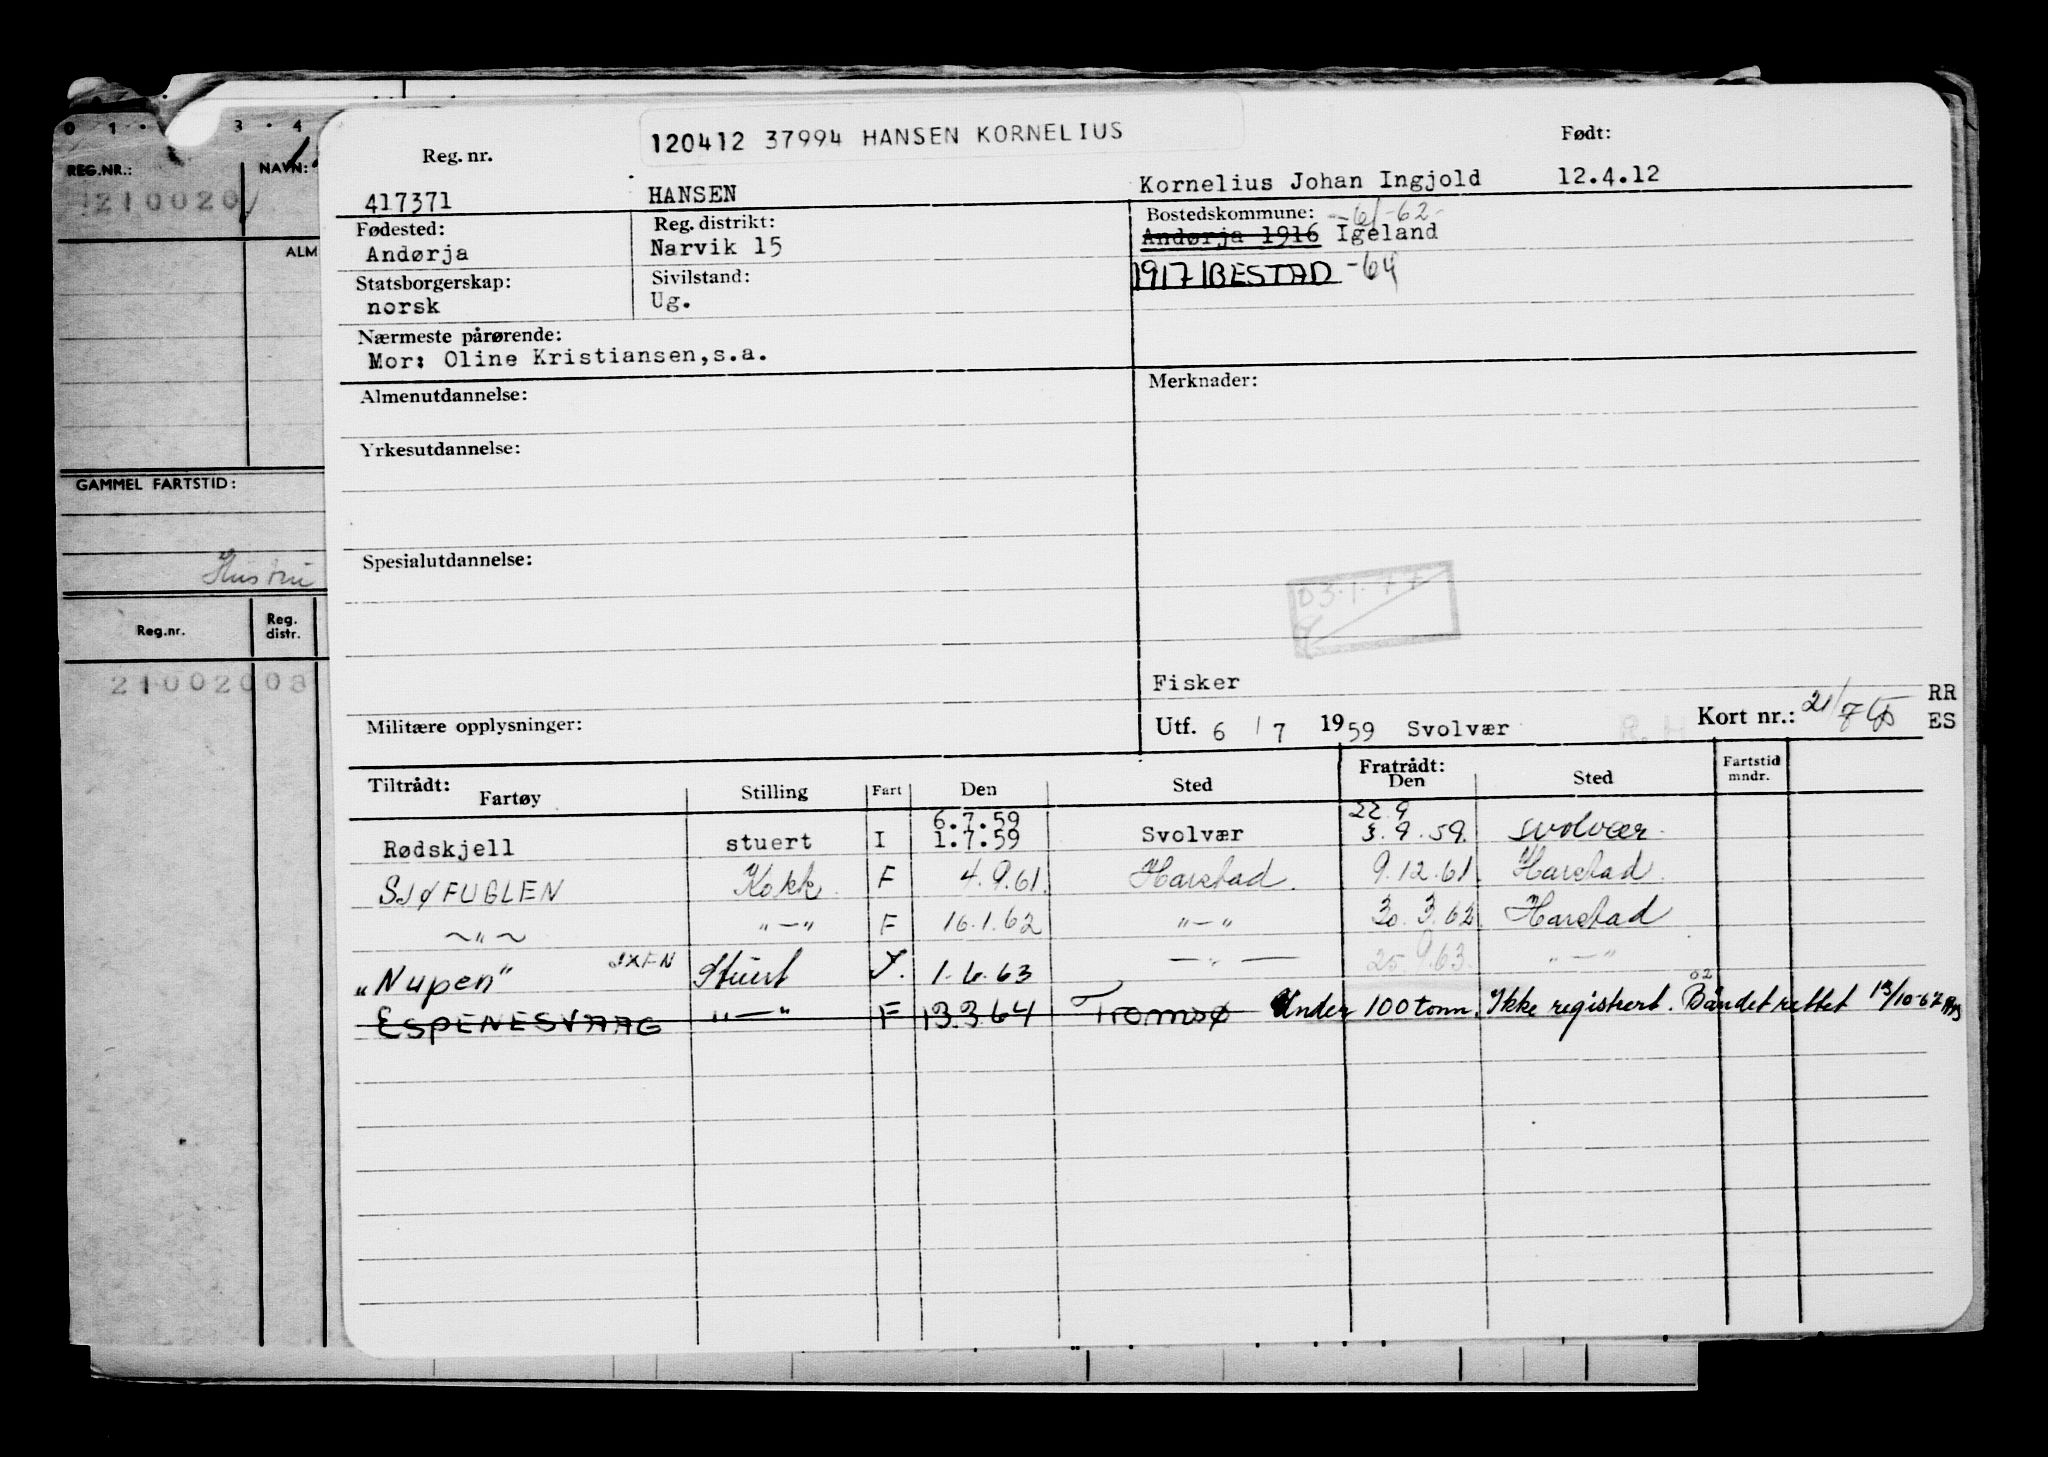 0 1 . 3 . 4
REG.NR.: NAVN:
210020
ALM
GAMMEL FARTSTID:
Hustru
Reg.nr. Reg. distr.
21002008
120412 37994 HANSEN KORNELIUS
Reg. nr. Født:
417371 HANSEN Kornelius Johan Ingjold 12.4.12
Fødested: Reg. distrikt: Bostedskommune: -61-62-
Andørja Narvik 15 Andørja 1916 Igeland
Statsborgerskap: Sivilstand: 1917 IBESTAD -64
norsk Ug.
Nærmeste pårørende:
Mor: Oline Kristiansen,s.a.
Almenutdannelse: Merknader:
Yrkesutdannelse:
Spesialutdannelse:
03.1.77
Fisker
Militære opplysninger: Utf. 6 / 7 1959 Svolvær R.H Kort nr.: 21/7 RR
ES
Tiltrådt: Fratrådt:
Fartøy Stilling Fart Den Sted Den Sted Fartstid mndr.
6.7.59 22.9
Rødskjell stuert I 1.7.59 Svolvær 3.9.59 svolvær
SJØFUGLEN Kokk F 4.9.61. Harstad. 9.12.61. Harstad.
~"~ "—" F 16.1.62 "—" 30.3.62 Harstad
"Nupen" JXFN Stuert I. 1.6.63 —"— 25.9.63. "—"
ESPENESVAAG "—" F 13.3.64 Tromsø Under 100 tonn. Ikke registrert. Båndet rettet 13/10-67
02